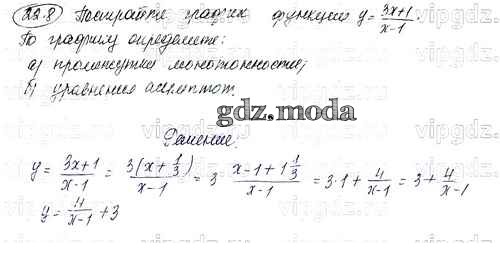 22.8 Постройте график функции y = \frac{3x+1}{x-1}.
По графику определите:
а) промежутки монотонности;
б) уравнения асимптот.
gdz.moda
Решение.
y = \frac{3x+1}{x-1} = \frac{3(x+\frac{1}{3})}{x-1} = 3 \cdot \frac{x-1+1\frac{1}{3}}{x-1} = 3·1 + \frac{4}{x-1} = 3 + \frac{4}{x-1}
y = \frac{4}{x-1} + 3